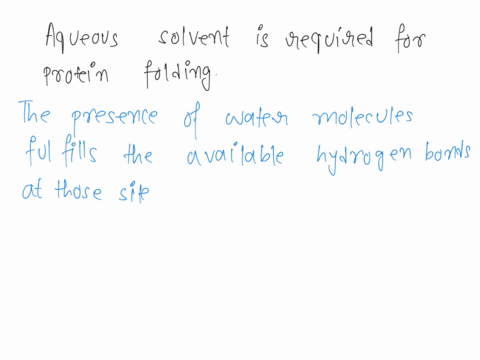 Aqueous solvent is required for
protein folding.
The presence of water molecules
fulfills the available hydrogen bonds
at those site